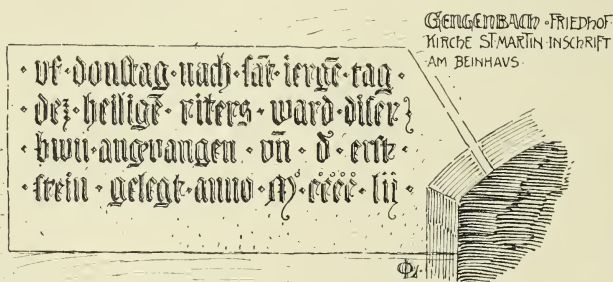 GENGENBACH · FRIEDHOF
KIRCHE ST MARTIN · INSCHRIFT
· AM BEINHAUS ·
· vf · donstag · nach · sāt · iergē · tag ·
· dez · heiligē · riters · ward · diser
· bwu · angevangen · vn̄ · d̄ · erst ·
· stein · gelegt · anno · M · cccc · lii ·